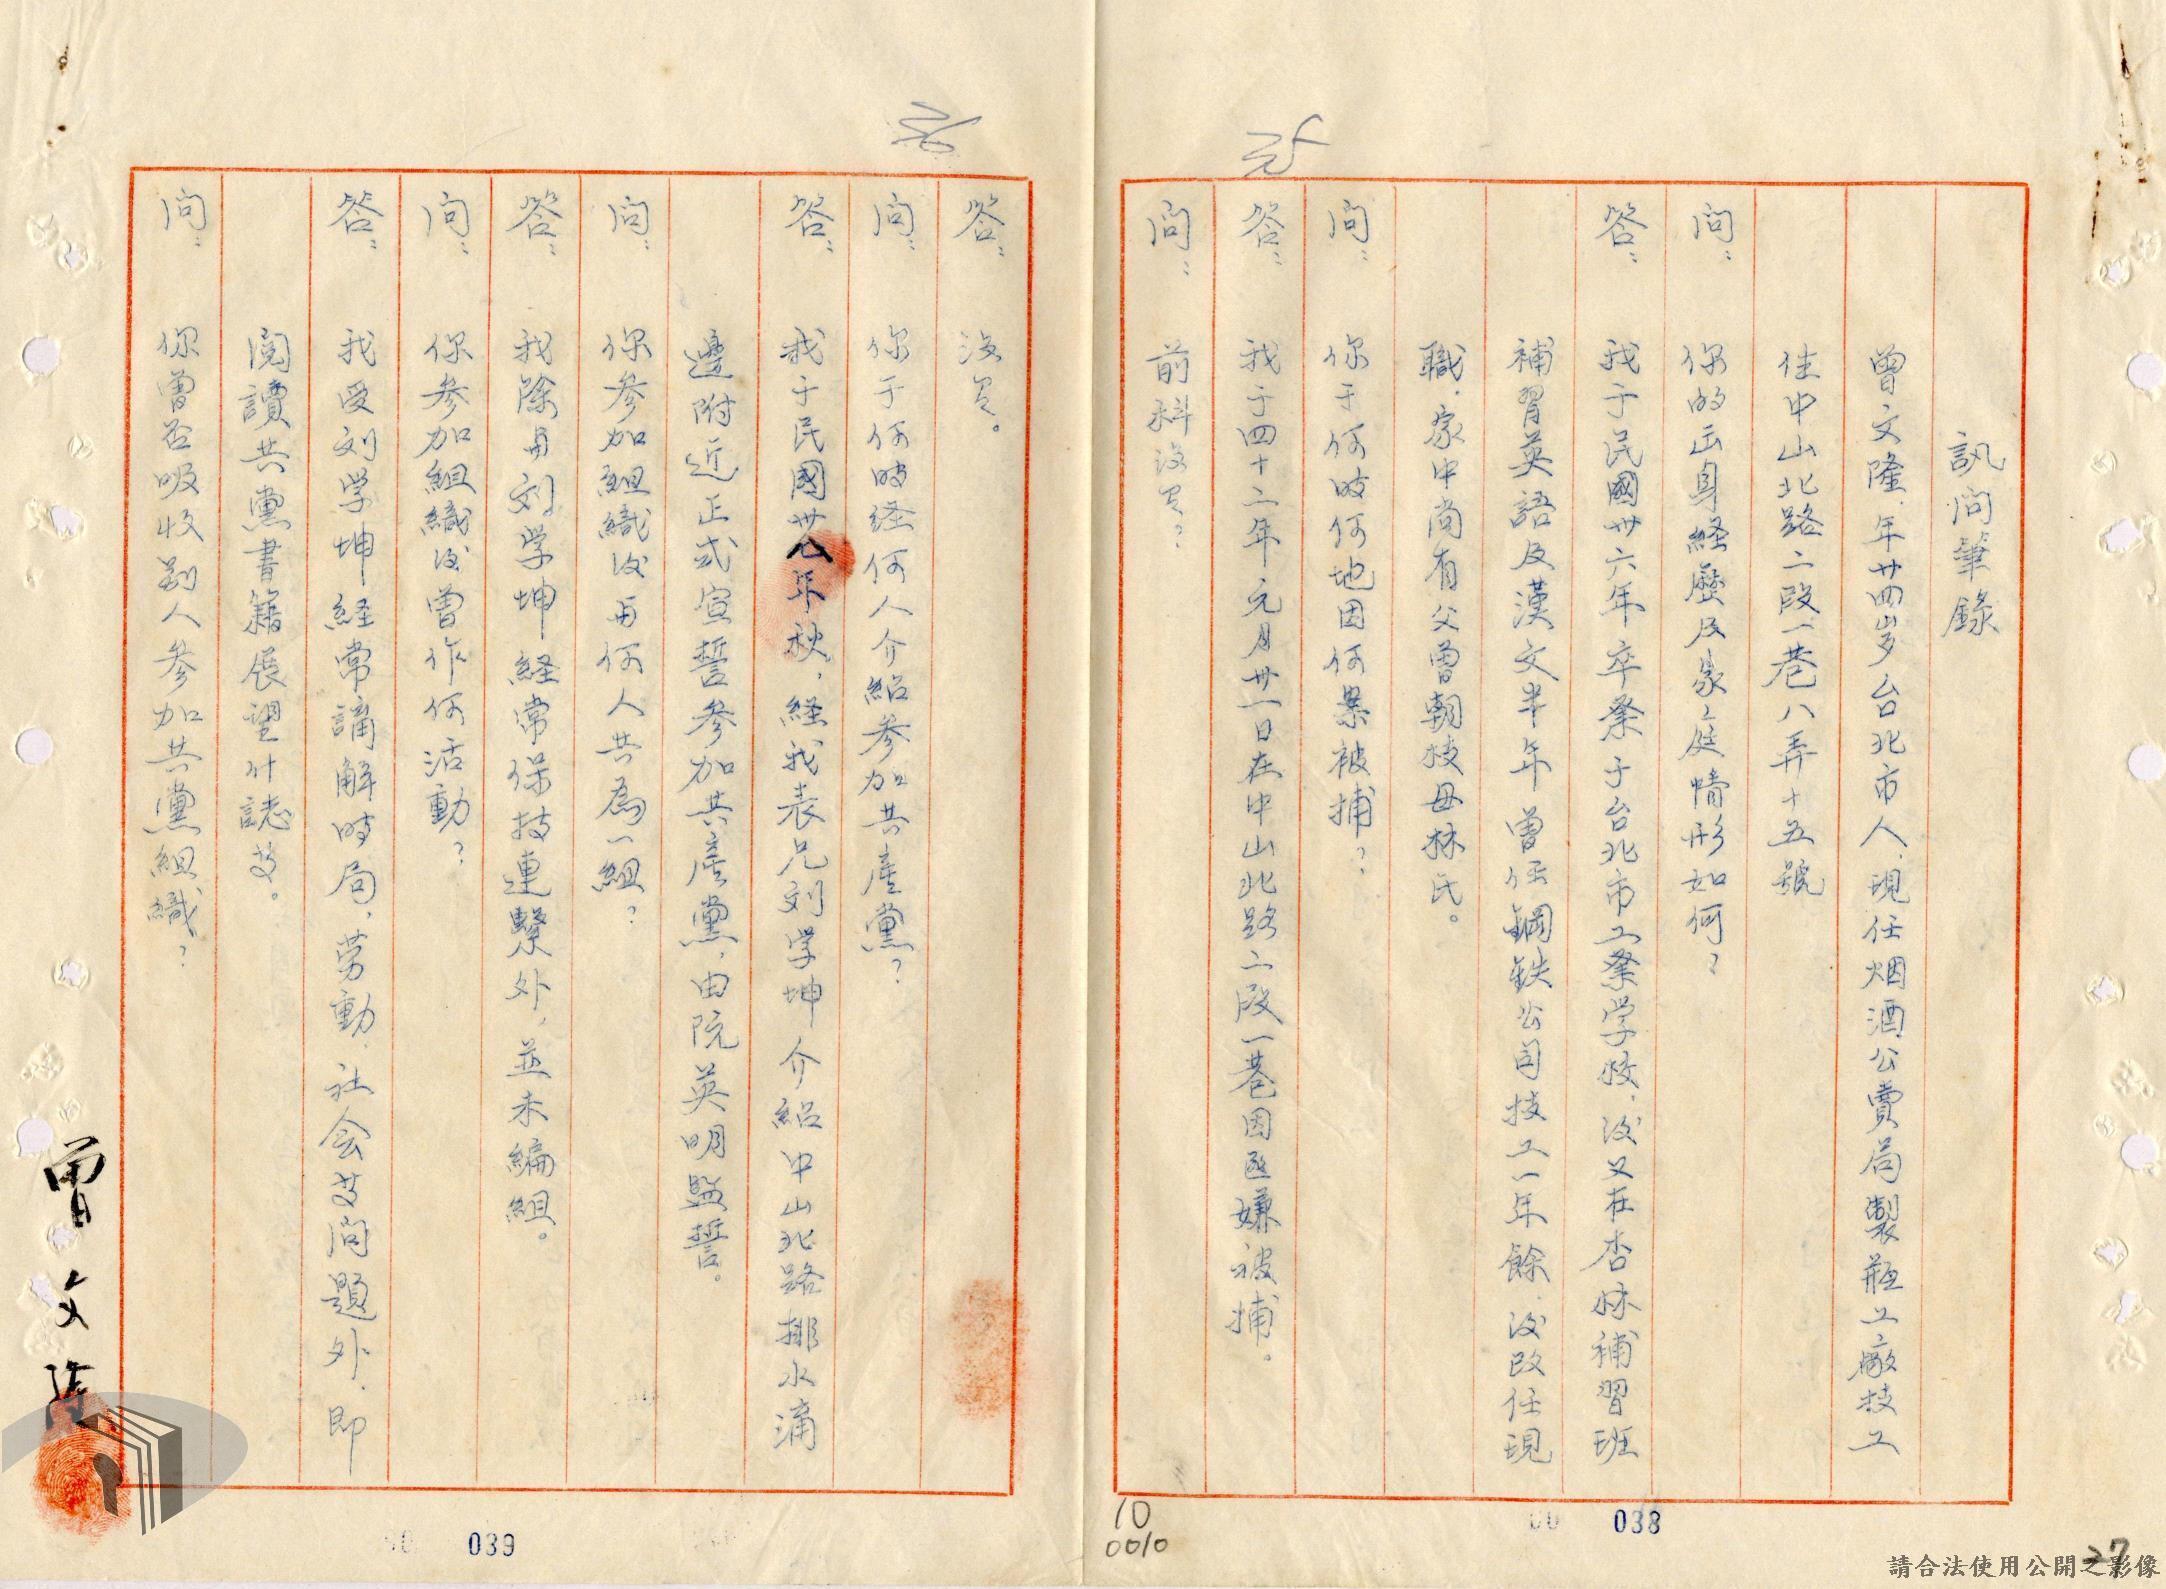 訊问筆錄
曾文隆，年廿四岁台北市人，現任烟酒公賣局製瓶工廠技工
住中山北路二段一巷八弄十五號
问：你的出身経歷及家庭情形如何？
答：我于民國卅六年卒業于台北市工業学校，後又在杏林補習班
補習英語及漢文半年曾任鋼鉄公司技工一年餘，後改任現
職，家中尚有父曾朝枝母林氏。
问：你于何时何地因何案被捕？
答：我于四十二年元月卅一日在中山北路二段一巷因匪嫌被捕。
问：前科没有？
答：没有。
问：你于何时経何人介紹参加共產黨？
答：我于民國卅八年秋，経我表兄刘学坤介紹中山北路排水溝
邊附近正式宣誓参加共產黨，由阮英明監誓。
问：你参加組織後与何人共為一組？
答：我除与刘学坤経常保技連繫外，並未編組。
问：你参加組織後曾作何活動？
答：我受刘学坤経常講解时局，劳動，社会等问題外，即
閱讀共黨書籍展望什誌等。
问：你曾否吸收别人参加共黨組織？
曾文隆
039
10
0010
038
27
請合法使用公開之影像